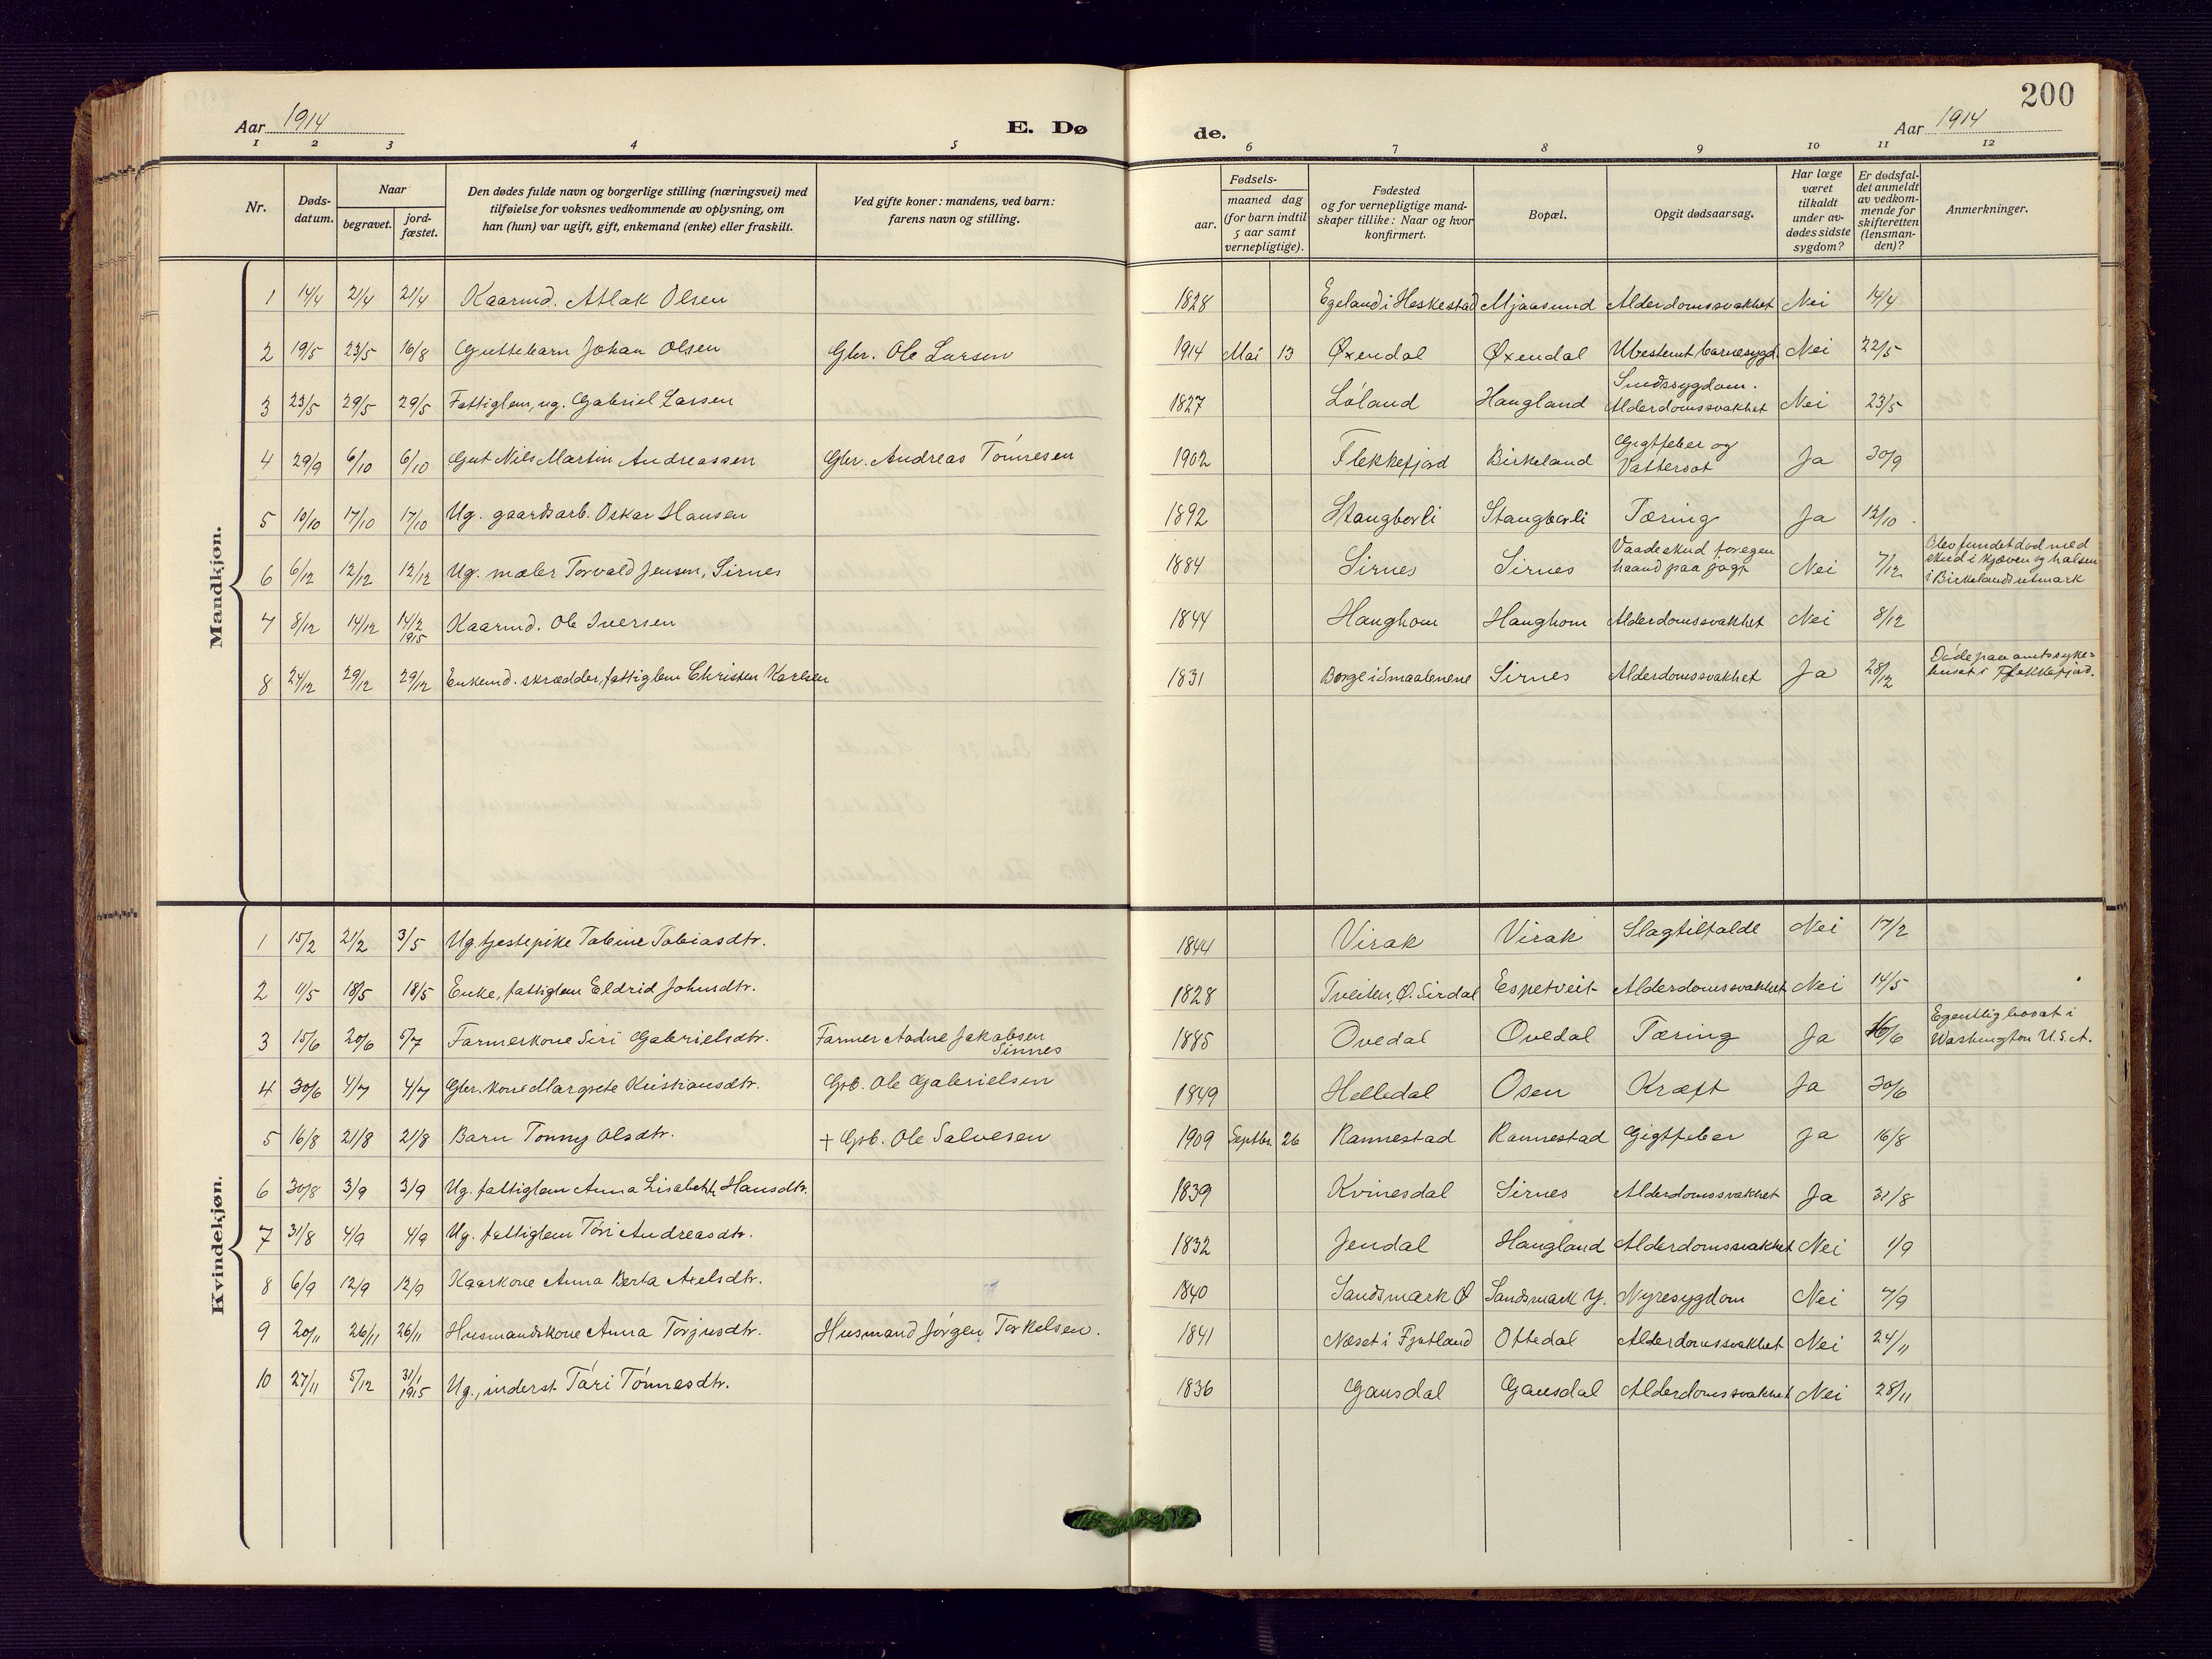 200
Aar 1914 E. Dø de. Aar 1914
1 2 3 4 5 6 7 8 9 10 11 12
Nr.
Døds-
datum.
Naar
begravet.
jord-
fæstet.
Den dødes fulde navn og borgerlige stilling (næringsvei) med
tilføielse for voksnes vedkommende av oplysning, om
han (hun) var ugift, gift, enkemand (enke) eller fraskilt.
Ved gifte koner: mandens, ved barn:
farens navn og stilling.
Fødsels-
aar.
maaned dag
(for barn indtil
5 aar samt
vernepligtige).
Fødested
og for vernepligtige mand-
skaper tillike: Naar og hvor
konfirmert.
Bopæl.
Opgit dødsaarsag.
Har læge
været
tilkaldt
under av-
dødes sidste
sygdom?
Er dødsfal-
det anmeldt
av vedkom-
mende for
skifteretten
(lensman-
den)?
Anmerkninger.
Mandkjøn.
1 14/4 21/4 21/4 Kaarmd. Atlak Olsen 1828 Egeland i Heskestad Mjaasund Alderdomssvakhet Nei 14/4
2 19/5 23/5 16/8 Guttebarn Johan Olsen Gbr. Ole Larsen 1914 Mai 13 Øxendal Øxendal Ubestemt barnesygd. Nei 22/5
3 23/5 29/5 29/5 Fattiglem, ug. Gabriel Larsen 1827 Løland Haugland Sindssygdom. Alderdomssvakhet Nei 23/5
4 29/9 6/10 6/10 Gut Nils Martin Andreassen Gbr. Andreas Tønnesen 1902 Flekkefjord Birkeland Gigtfeber og Vattersot Ja 30/9
5 10/10 17/10 17/10 Ug. gaardsarb. Oskar Hansen 1892 Stangborli Stangborli Tæring Ja 12/10
6 6/12 12/12 12/12 Ug. maler Torvald Jensen, Sirnes 1884 Sirnes Sirnes Vaadeskud for egen haand paa jagt Nei 7/12 Blev fundet død med skud i kjæven og halsen i Birkelands utmark
7 8/12 14/12 14/2 1915 Kaarmd. Ole Iversen 1844 Haughom Haughom Alderdomssvakhet Nei 8/12
8 24/12 29/12 29/12 Enkemd. skrædder, fattiglem Christen Karlsen 1831 Borge i Smaalenene Sirnes Alderdomssvakhet Ja 28/12 Døde paa amtssyke- huset i Flekkefjord.
Kvindekjøn.
1 15/2 21/2 3/5 Ug. tjestepike Tabine Tobiasdtr. 1844 Virak Virak Slagtilfalde Nei 17/2
2 11/5 18/5 18/5 Enke, fattiglem Eldrid Johnsdtr. 1828 Tveiten, Ø. Sirdal Espetveit Alderdomssvakhet Nei 14/5
3 15/6 20/6 5/7 Farmerkone Siri Gabrielsdtr. Farmer Aadne Jakobsen Sinnes 1885 Ovedal Ovedal Tæring Ja 16/6 Egentlig bosat i Washington U.S.A.
4 30/6 4/7 4/7 Gbr. kone Margrete Kristiansdtr. Gbr. Ole Gabrielsen 1849 Helledal Osen Kræft Ja 30/6
5 16/8 21/8 21/8 Barn Tonny Olsdtr. + Gbr. Ole Salvesen 1909 Septbr. 26 Rannestad Rannestad Gigtfeber Ja 16/8
6 30/8 3/9 3/9 Ug. fattiglem Anna Lisabeth Hansdtr. 1839 Kvinesdal Sirnes Alderdomssvakhet Ja 31/8
7 31/8 4/9 4/9 Ug. fattiglem Tøri Andreasdtr. 1832 Jendal Haugland Alderdomssvakhet Nei 1/9
8 6/9 12/9 12/9 Kaarkone Anna Berta Axelsdtr. 1840 Sandsmark Ø Sandsmark Y. Nyresygdom Nei 7/9
9 20/11 26/11 26/11 Husmandskone Anna Torjusdtr. Husmand Jørgen Torkelsen. 1841 Neset i Fjotland Oftedal Alderdomssvakhet Nei 24/11
10 27/11 5/12 31/1 1915 Ug., inderst Tari Tønnesdtr. 1836 Gausdal Gausdal Alderdomssvakhet Nei 28/11